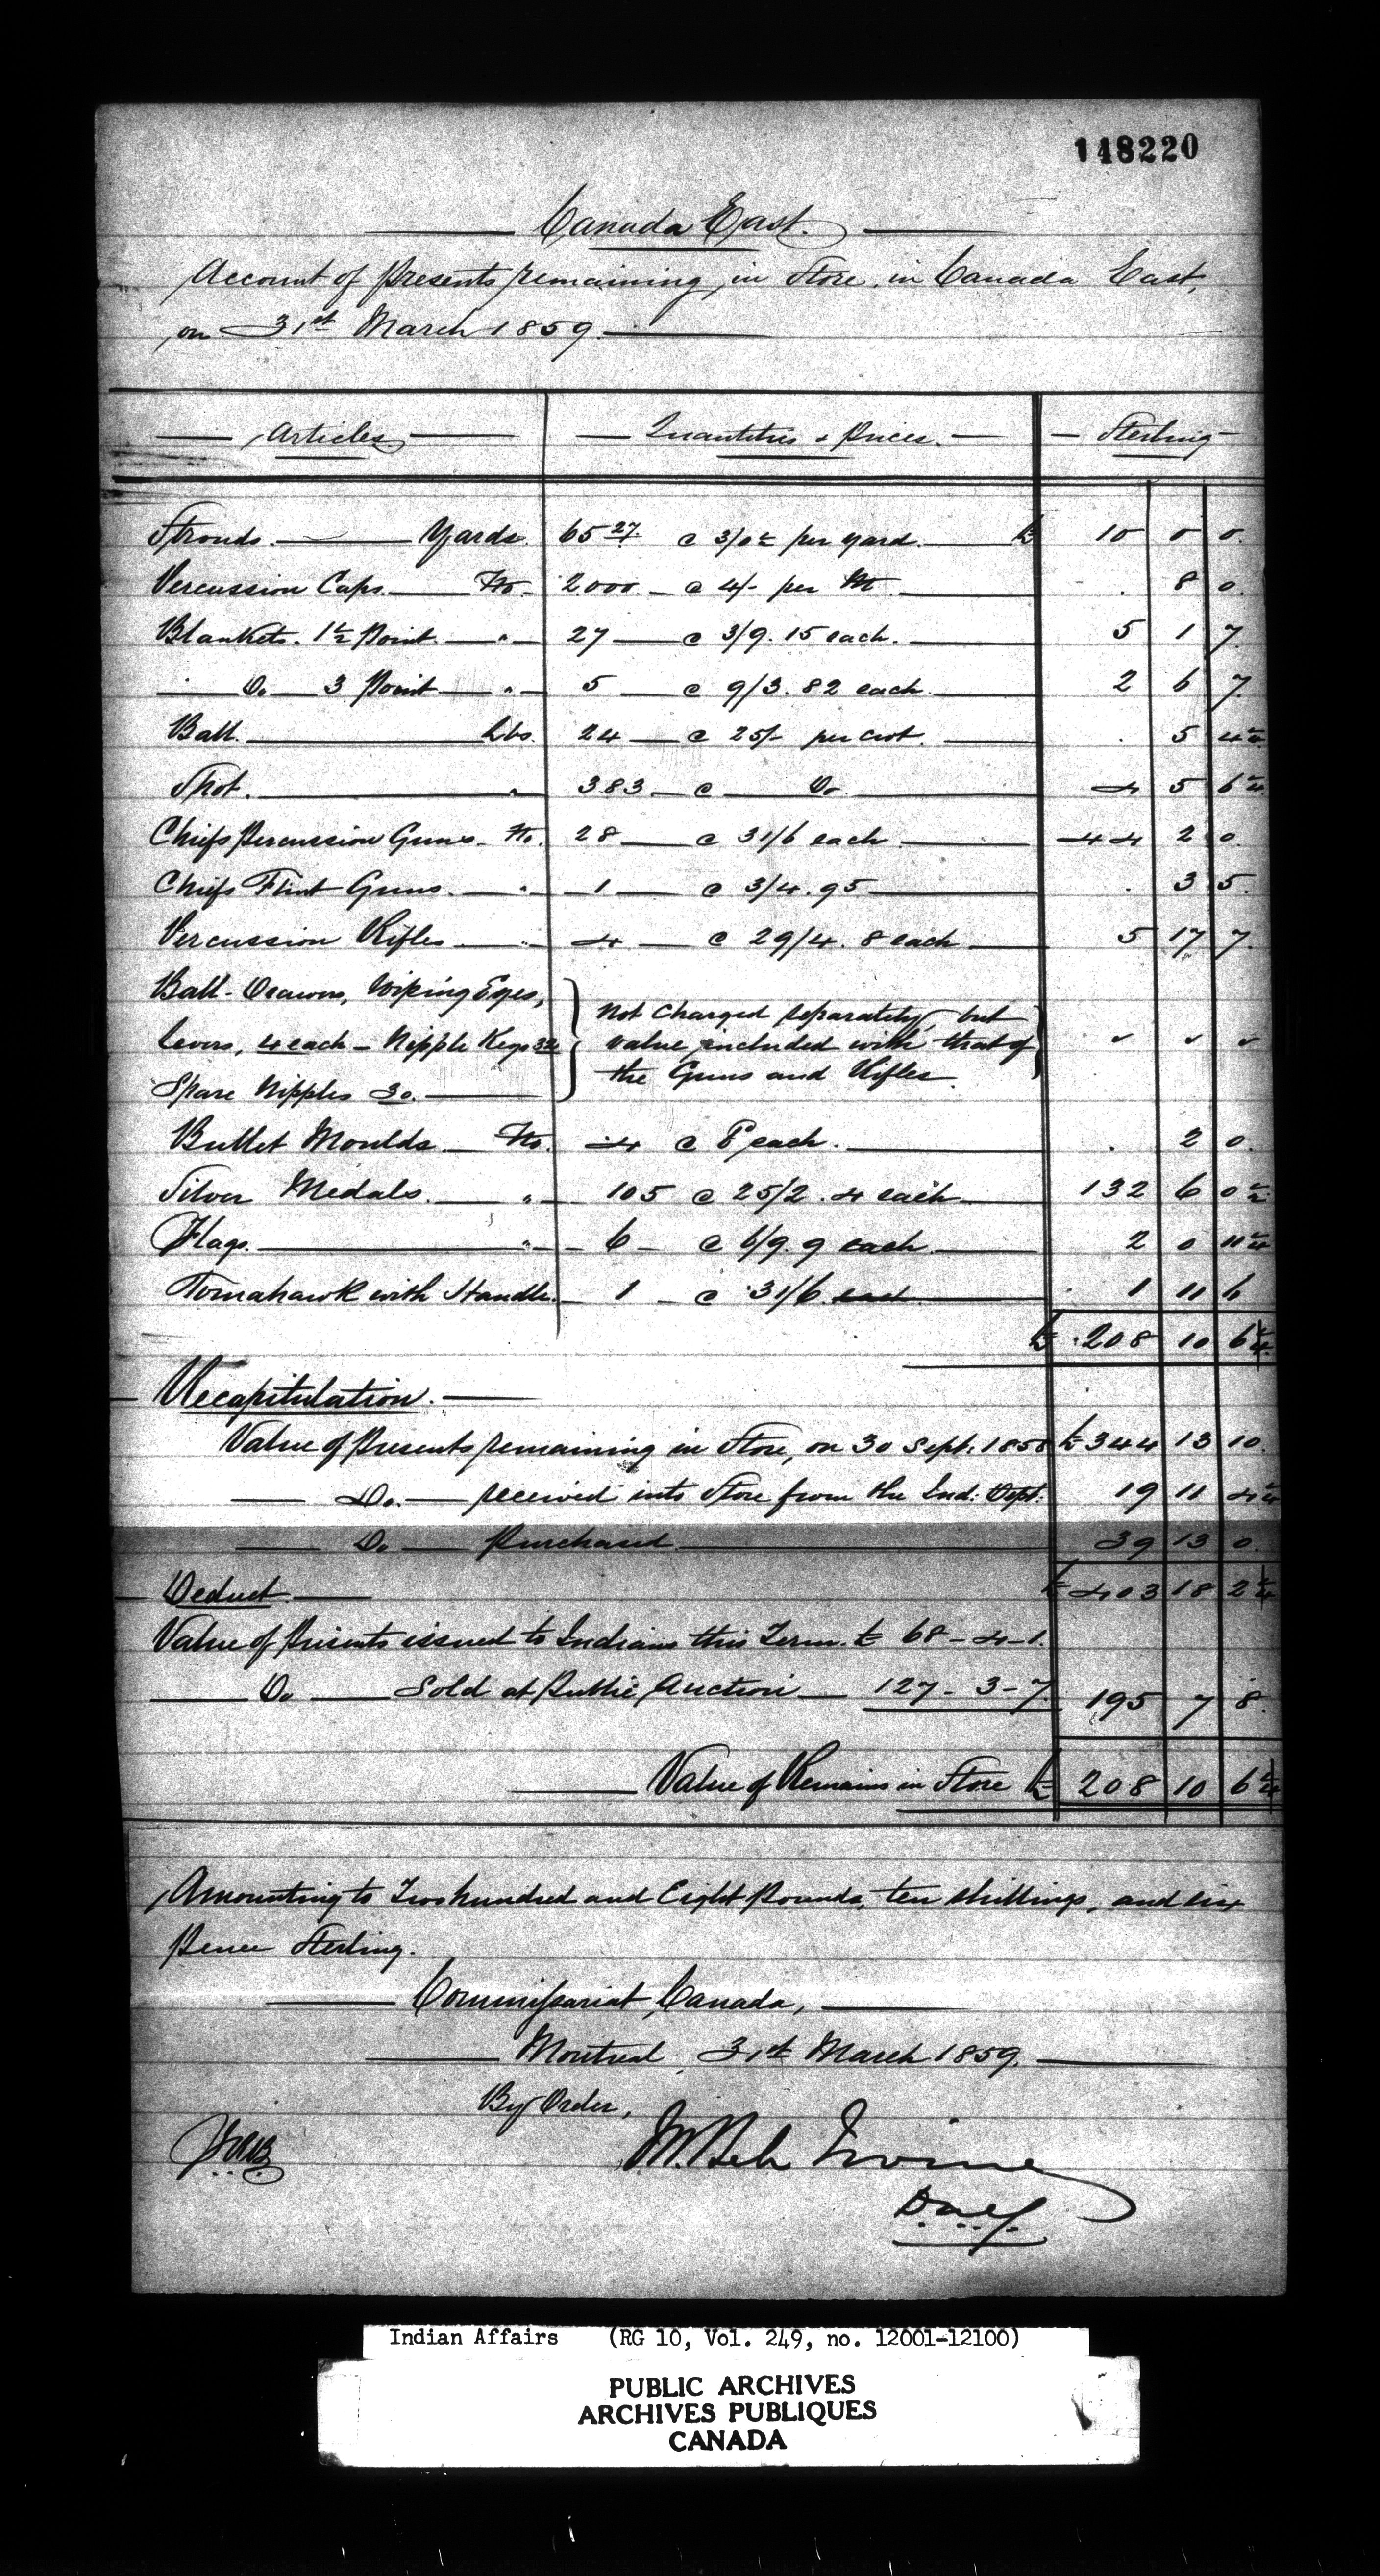 148220
Canada East.
Account of Presents remaining in Store, in Canada East,
on 31st March 1859.
Articles Quantities & Prices. Sterling
Strouds. Yards. 65 27/. @ 3/0½ per yard. £ 10 0 0.
Percussion Caps. No. 2.000. @ 4/- per M. . 8 0.
Blankets. 1½ Point. " 27 @ 3/9.15 each. 5 1 7.
Do. 3 Point " 5 @ 9/3.82 each. 2 6 7.
Ball. Lbs. 24 @ 25/- per cwt. . 5 4¼
Shot. " 383 @ Do. 4 5 6¼
Chiefs Percussion Guns. No. 28 @ 31/6 each. 44 2 0.
Chiefs Flint Guns. " 1 @ 3/4.95 . 3 5.
Percussion Rifles " 4 @ 29/4.8 each 5 17 7.
Ball-Drawers, Wiping Eyes,
levers, 4 each - Nipple Keys 32
Spare Nipples 30.
Not Charged separately, but
value included with that of
the Guns and Rifles.
Bullet Moulds. No. 4 @ 6 each. . 2 0.
Silver Medals. " 105 @ 25/2.4 each 132 6 0½
Flags. " 6 @ 6/9.9 each. 2 0 11¼
Tomahawk with Handle. 1 @ 31/6 each 1 11 6
£ 208 10 6¼
Recapitulation.
Value of Presents remaining in Store, on 30 Sept. 1858 £344 13 10.
Do. received into Store from the Ind: Dept. 19 11 4¼
Do. Purchased. 39 13 0.
Deduct. £ 403 18 2¼
Value of Presents issued to Indians this Term. £ 68-4-1.
Do. Sold at Public Auction 127-3-7 195 7 8.
Value of Remains in Store £ 208 10 6¼
Amounting to Two hundred and Eight Pounds, ten shillings, and six
Pence Sterling.
Commissariat, Canada,
Montreal, 31st March 1859.
By Order,
M. Bell Irvine
D.C.G.
Indian Affairs (RG 10, Vol. 249, no. 12001-12100)
PUBLIC ARCHIVES
ARCHIVES PUBLIQUES
CANADA